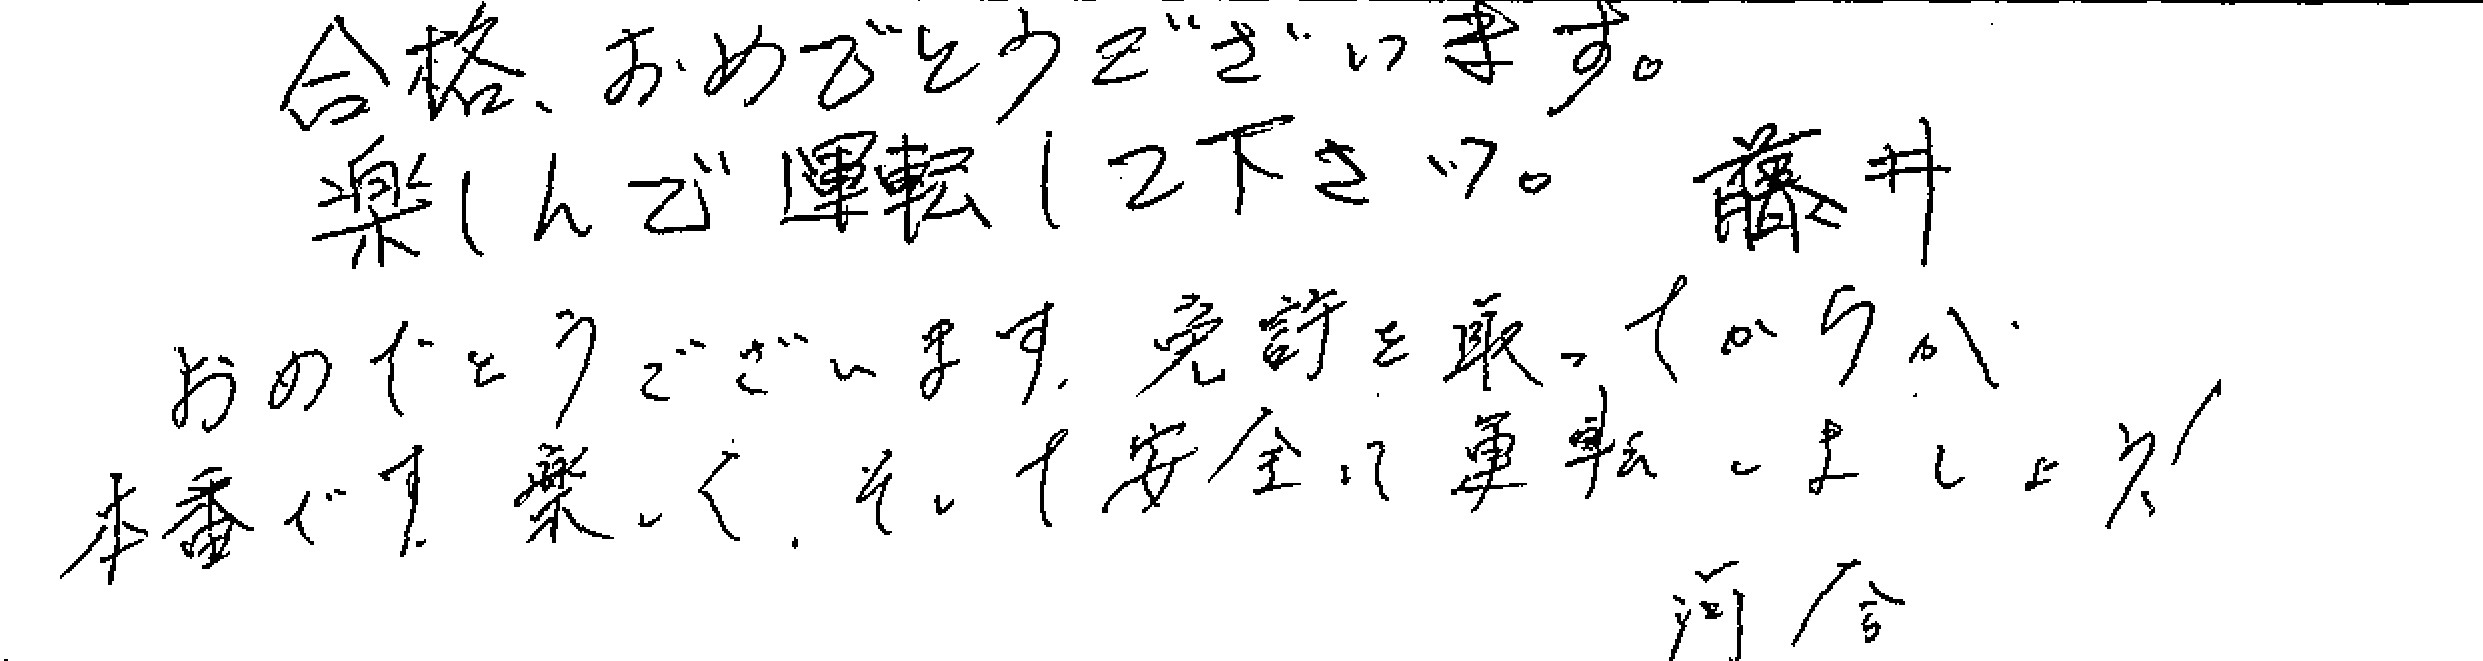 合格、おめでとうございます。
楽しんで運転して下さい。 藤井
おめでとうございます。免許を取ってからが
本番です。楽しく、そして安全に運転しましょう!
河合